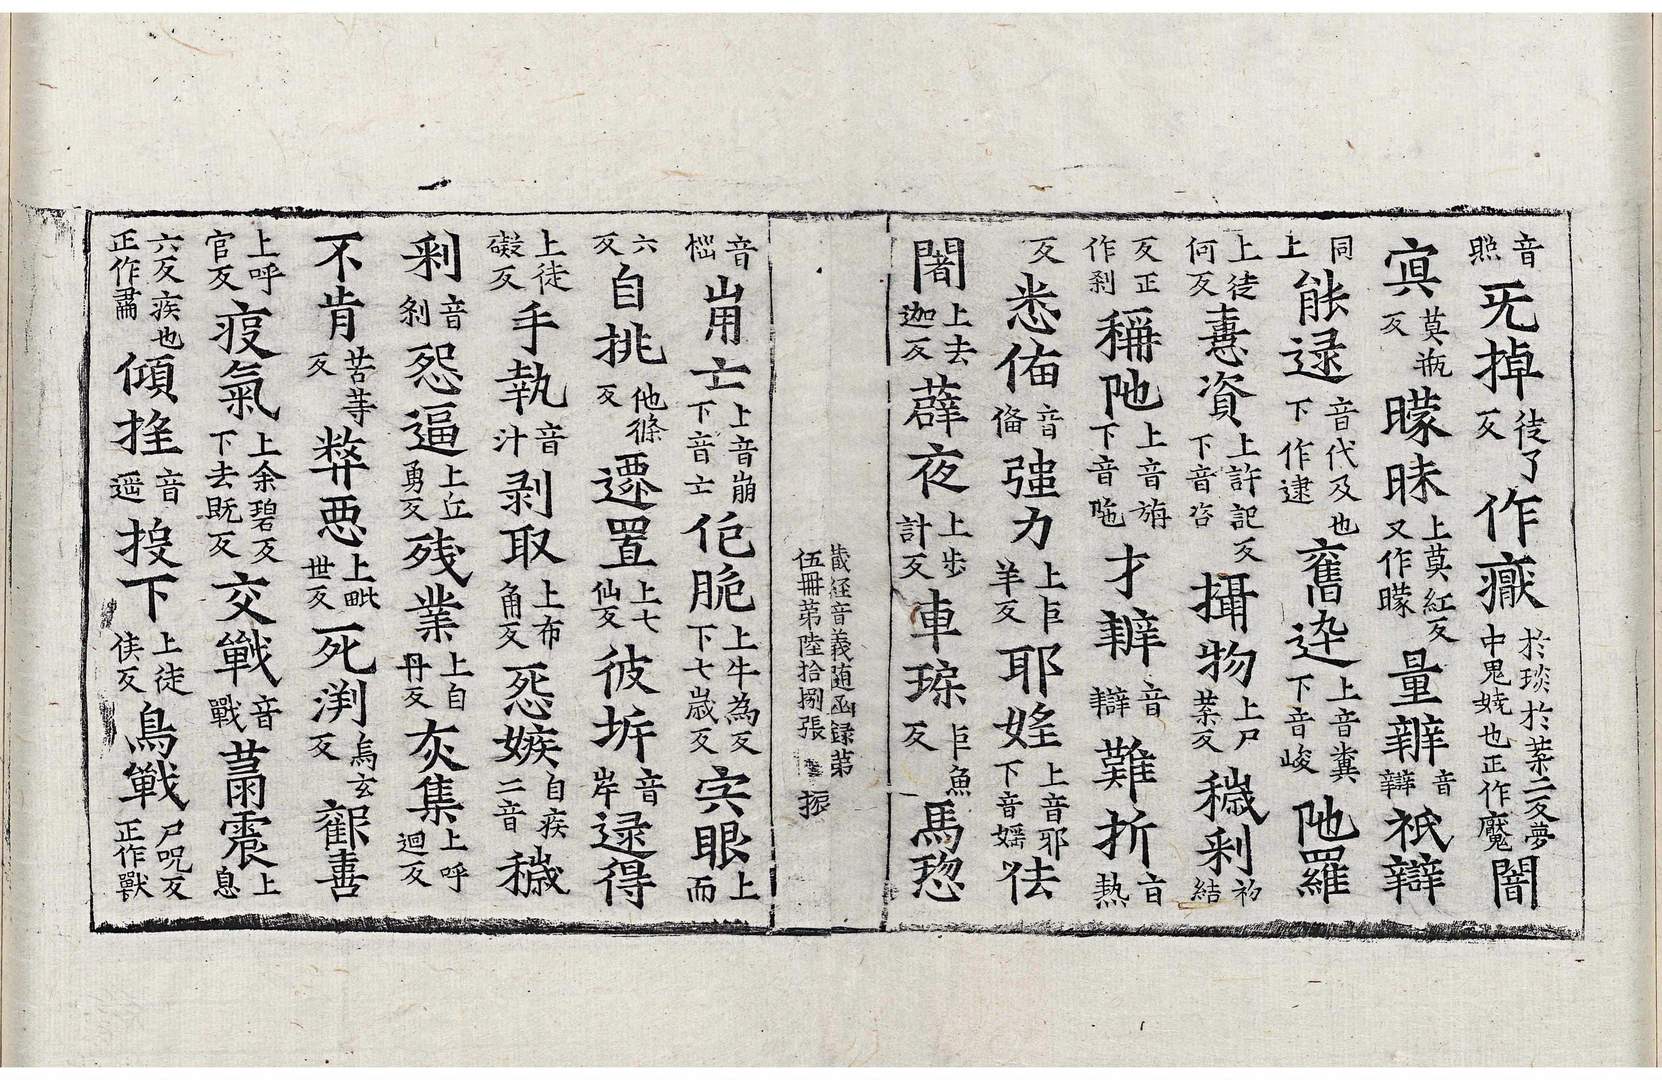 音照旡掉徒了反作癜於琰於葉二反夢中鬼娆也正作魘闇
㝠莫瓶反矇昧上莫紅反又作矇量辦音辯祇辯
同上能逯音代及也下作逮奮迩上音糞下音峻吔羅
上徒何反憙資上許記反下音咨攝物上尸葉反穢刹初結
反正作刹稱吔上音旃下音陁才辦音辯難折音熱
反悉侑音俻強力上巨羊反耶婬上音耶下音婬佉
闇上去迦反薜夜上步計反車璖巨魚反馬惣
藏経音義随函録第
伍冊第陸拾捌張 振
音㥧崩亡上音崩下音亡佹脆上牛為反下七歳反宍眼上而
六反自挑他條反遷置上七仙反彼坼音岸逯得
上徒礙反手執音汁剥取上布角反惡嫉自疾二音穢
刹音刹怨逼上丘勇反残業上自丹反灰集上呼迴反
不肯苦等反弊惡上毗世反死渕烏玄反鄱善
上呼官反疫氣上余碧反下去既反交戰音戰萬震上息
六反疾也正作肅傾搖音遥投下上徒侯反鳥戰尸呪反正作獸